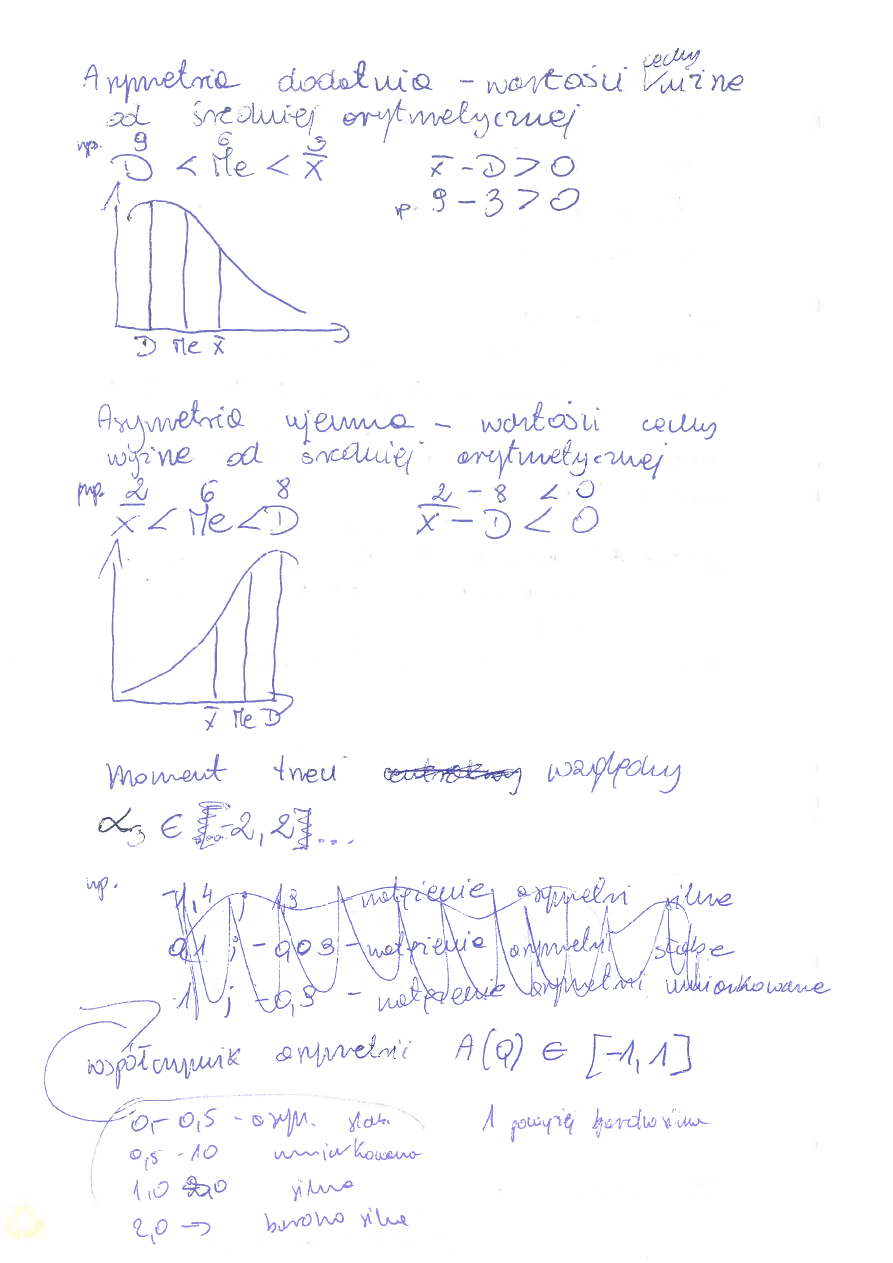 Asymetria dodatnia – wartości cechy niżne
od średniej arytmetycznej
np. 9 6 3
D < Me < x̄ x̄ - D > 0
np. 9 - 3 > 0
D Me x̄
Asymetria ujemna – wartości cechy
wyżne od średniej arytmetycznej
np. 2 6 8 2 - 8 < 0
x̄ < Me < D x̄ - D < 0
x̄ Me D
Moment trzeci względny
α₃ ∈ [-2, 2]...
np. -1,4 ; 1,3 - natężenie asymetrii silne
0,1 ; - 0,03 - natężenie asymetrii słabe
1 ; -0,9 - natężenie asymetrii umiarkowane
współczynnik asymetrii A(Q) ∈ [-1, 1]
0,- 0,5 - asym. słab. 1 powyżej bardzo silna
0,5 - 10 umiarkowana
1,0 2,0 silna
2,0 → bardzo silna